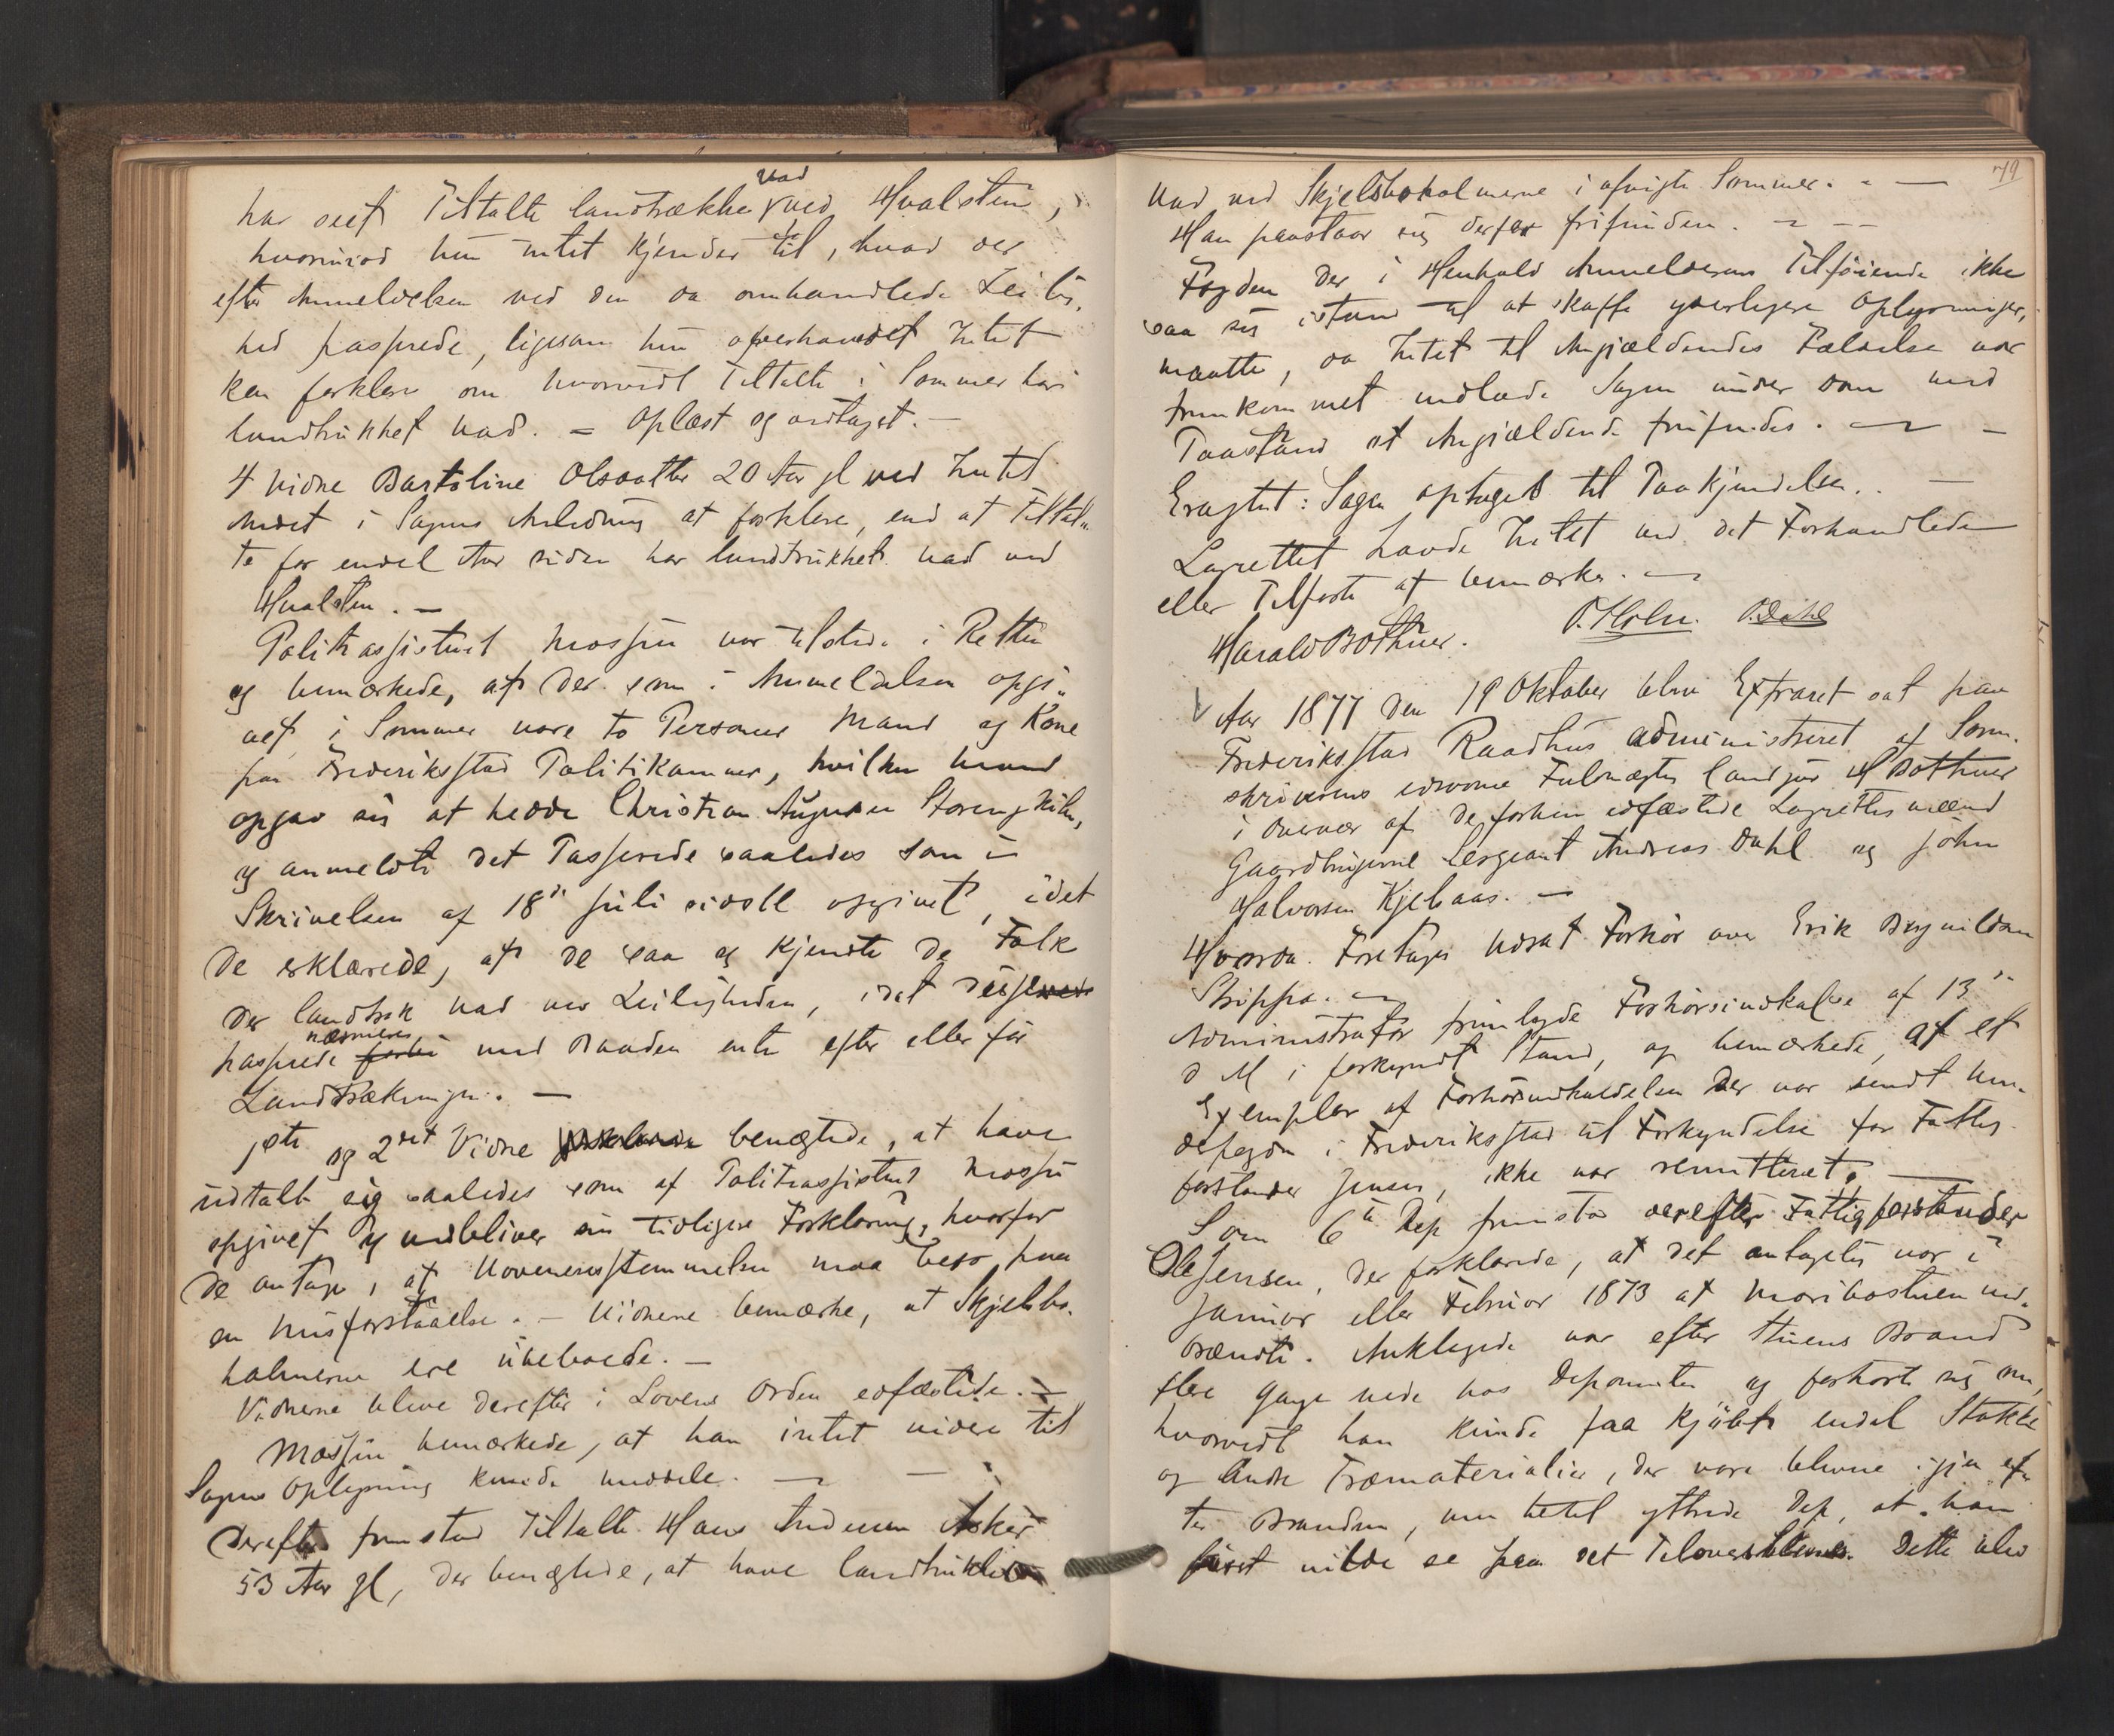 har seet Tiltalte landtrække Vad ved Hvalsten,
hvorimod hun intet kjender til, hvad der
efter Anmeldelsen ved den da omhandlede Leilig-
hed passerede, ligesom hun overhovedet Intet
kan forklare om hvorvidt Tiltalte i Sommer har
landtrukket Vad. = Oplæst og vedtaget. —
4 Vidne Bartoline Olsdatter 20 Aar gl ved Intet
Andet i Sagens Anledning at forklare, end at Tiltal-
te for endel Aar siden har landtrukket Vad ved
Hvalsten. —
Politiassistent Mossin var tilstede i Retten
og bemærkede, at der som i Anmeldelsen opgi-
vet i Sommer vare to Personer Mand og Kone
paa Frederiksstad Politikammer, hvilken Mand
opgav sig at hedde Christian August
og anmeldte det Passerede saaledes som i
Skrivelsen af 18de Juli sidstl opgivet, idet
De erklærede, at de saa og kjendte de Folk
der landtrak Vad ved Leiligheden, idet disse
passerede nærmere med Baaden enten efter eller før
Landtrækningen. —
1ste og 2det Vidne benægtede, at have
udtalt sig saaledes som af Politiassistent Mossin
opgivet og vedbliver sin tidligere Forklaring, hvorfor
de antage, at Uoverensstemmelsen maa bero paa
en Misforstaaelse. — Vidnerne bemærke, at Skjelsbo-
holmerne ere ubeboede. —
Vidnerne bleve derefter i Lovens Orden edfæstede. —
Mossin bemærkede, at han intet videre til
Sagens Oplysning kunde meddele. —
Derefter fremstod Tiltalte Hans Andersen Asker
53 Aar gl, der benægtede, at have landtrukket
79
Vad ved Skjelsboholmerne i afvigte Sommer. —
Han paastaar sig derfor frifunden. —
Fogden der i Henhold Anmelderens Tilføiende ikke
saa sig istand til at skaffe yderligere Oplysninger,
maatte, da Intet til Angjældendes Fældelse var
fremkommet indlade Sagen under Dom med
Paastand at Angjældende frifindes. —
Eragtet: Sagen optages til Paakjendelse. —
Lagrettet havde Intet ved det Forhandlede
eller Tilførte at bemærke. —
Harald Bothner. O. Holm. O. Dahl
Aar 1877 den 19 Oktober blev Extraret sat paa
Frederiksstad Raadhus administreret af Soren-
skriverens edsvorne Fuldmægtig cand jur H Bothner
i Overvær af de forhen edfæstede Lagrettesmænd
Gaardbrugerne Sergeant Andreas Dahl og John
Halvorsen Kjølaas. —
Hvorda Foretages Udsat Forhør over Erik Brynildsen
Strippa. —
Administrator fremlagde Forhørsindkaldelse af 13de
d M i forkyndt Stand, og bemærkede, at et
Exemplar af Forhørsindkaldelsen der var sendt Un-
derfogden i Frederiksstad til Forkyndelse for Fattig-
forstander Jensen, ikke var remitteret. —
Som 6te Dep fremstod derefter Fattigforstander
Ole Jensen, der forklarede, at det antagelig var i
Januar eller Februar 1873 at Maribostuen ned-
brændte. Anklagede var efter Stuens Brand
flere Gange nede hos Deponenten og forhørte sig om,
hvorvidt han kunde faa kjøbt endel Stokke
og andre Træmaterialier, der vare blevne igjen ef-
ter Branden, men hertil yttrede Dep, at han
først vilde se paa det Tiloversblevne. Dette blev